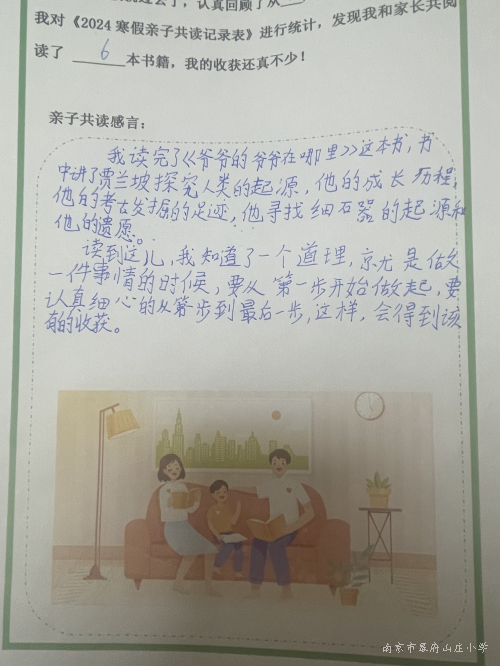 认真回顾了从
我对《2024寒假亲子共读记录表》进行统计，发现我和家长共阅
读了 6 本书籍，我的收获还真不少！
亲子共读感言：
我读完了《爷爷的爷爷在哪里》这本书，书
中讲了贾兰坡探究人类的起源，他的成长历程，
他的考古发掘的足迹，他寻找细石器的起源和
他的遗愿。
读到这儿，我知道了一个道理，就是做
一件事情的时候，要从第一步开始做起，要
认真细心的从第一步到最后一步，这样，会得到该
有的收获。
南京市幕府山庄小学